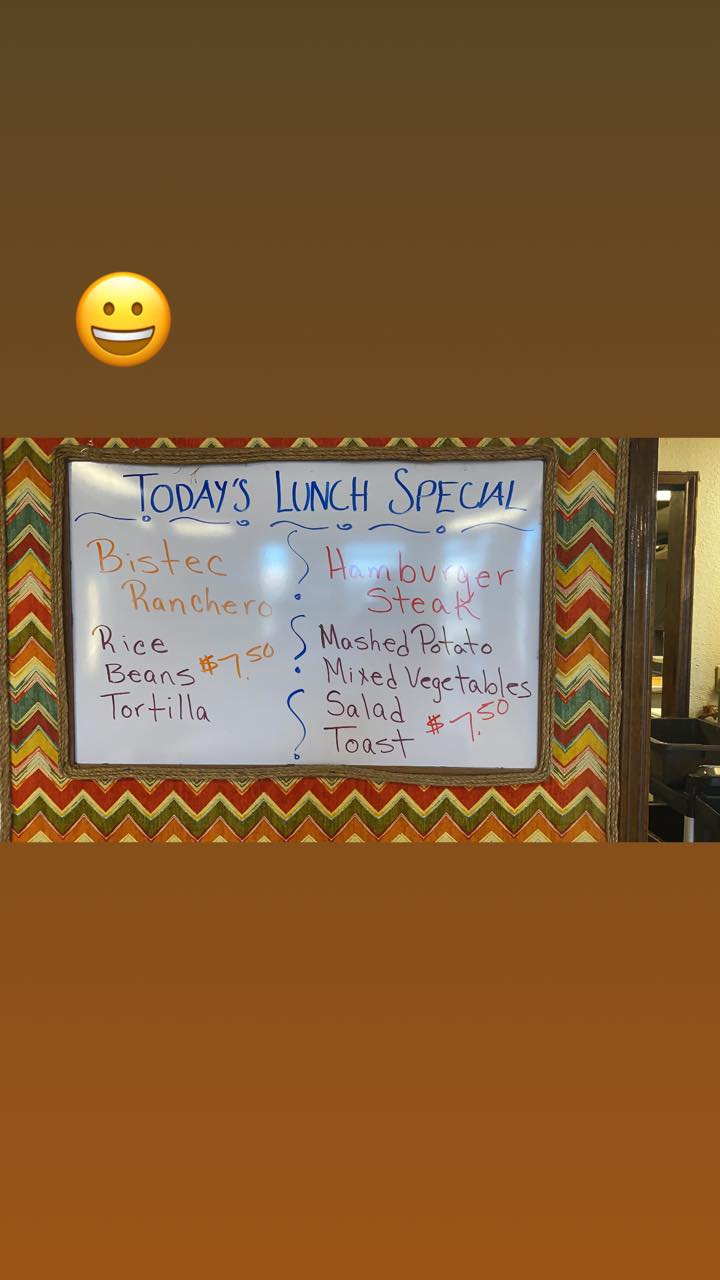 TODAY'S LUNCH SPECIAL
Bistec
Ranchero
Rice
Beans $7.50
Tortilla
Hamburger
Steak
Mashed Potato
Mixed Vegetables
Salad
Toast $7.50